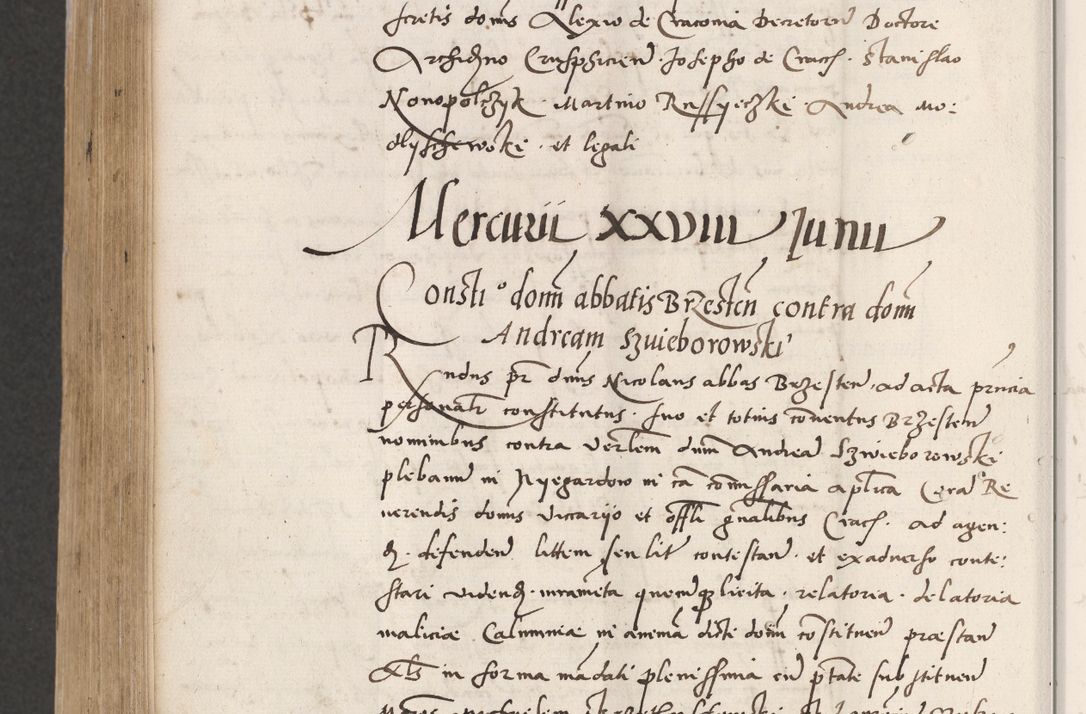 scretis domīs Alexio de Cracouia Decretorū Doctore
Archidyno Crusphicien̄. Josepho de Cracɧ. Stanislao
Nonopolczyk. Martino Russyeczki. Andrea Mo:
dlyschewski. et legali
Mercurii XXVIII Iunii
Constiº dom̄ abbatis Brzesten̄ contra dom̄
Andream Szuieborowski
Rndus pr̄ dn̄us Nicolaus abbas Brzesten̄. ad acta pn̄cia
personalr̄ constitutus. suo et totius conuentus Brzesten̄
nominibus contra Ven̄lem dnm̄ Andreā Szwieborowski
plebanū in Nyegardow in cā com̄issaria ap̄lica Corā Re
uerendis domīs Viccariio et offłi gn̄alibus Cracɧ. ad agen:
d. defenden̄ littem seu lit̄ contestan̄. et exaduerso conte:
stari viden̄d. iuramēta quecūq̄ licita. relatoria. delatoria
maliciæ Calumniæ in animā dicti dom̄ cōstituen̄ præstan̄
Als̄ in forma mādati plenissima cū ptāte substituen̄